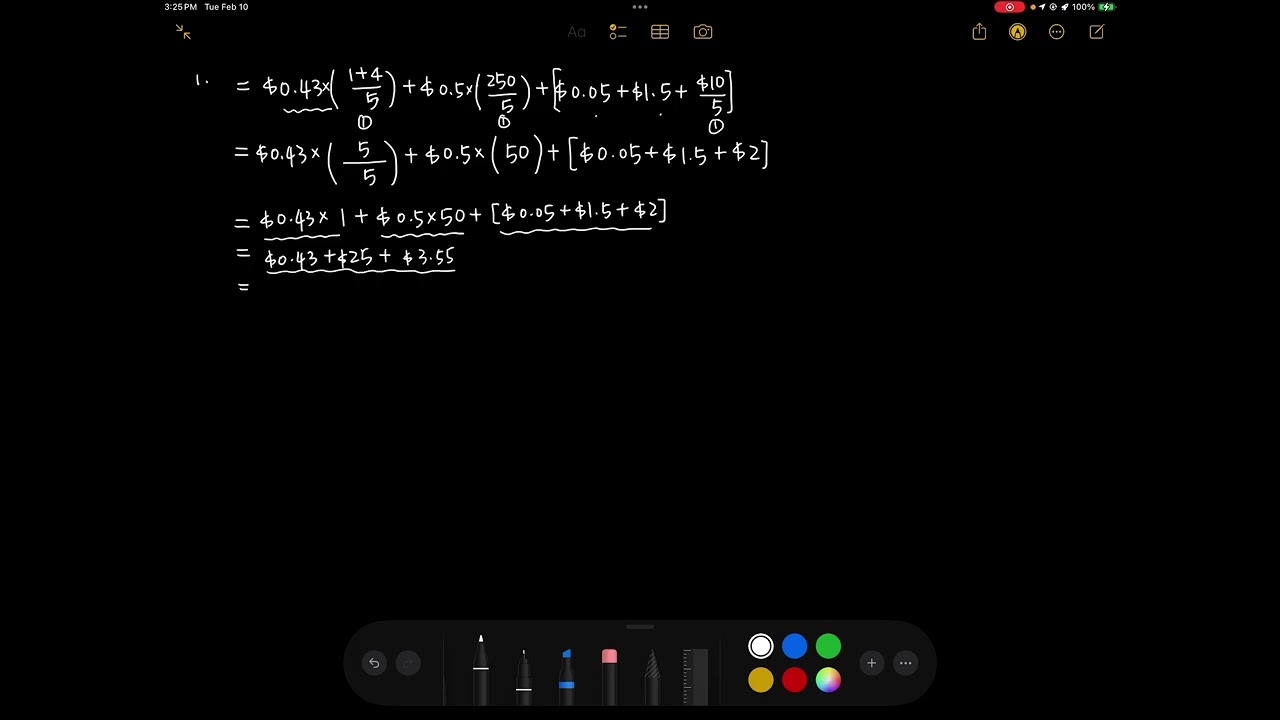 3:25 PM Tue Feb 10
100%
Aa
1. = $0.43×(1+4/5)+$0.5×(250/5)+[$0.05+$1.5+$10/5]
① ① ①
=$0.43×(5/5)+$0.5×(50)+[$0.05+$1.5+$2]
=$0.43×1+$0.5×50+[$0.05+$1.5+$2]
= $0.43+$25+ $3.55
=